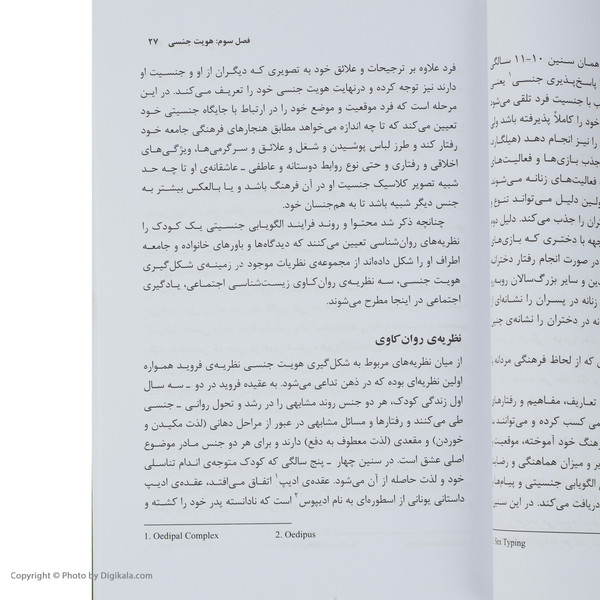 فصل سوم: هویت جنسی ۲۷
فرد علاوه بر ترجیحات و علائق خود به تصویری که دیگران از او و جنسیت او
دارند نیز توجه کرده و درنهایت هویت جنسی خود را تعریف می‌کند. در این
مرحله است که فرد موقعیت و موضع خود را در ارتباط با جایگاه جنسیتی خود
تعیین می‌کند که تا چه اندازه می‌خواهد مطابق هنجارهای فرهنگی جامعه خود
رفتار کند و طرز لباس پوشیدن و شغل و علائق و سرگرمی‌ها، ویژگی‌های
اخلاقی و رفتاری و حتی نوع روابط دوستانه و عاطفی ـ عاشقانه‌ی او تا چه حد
شبیه تصویر کلاسیک جنسیت او در آن فرهنگ باشد و یا بالعکس بیشتر به
جنس دیگر شبیه باشد تا به هم‌جنسان خود.
چنانچه ذکر شد محتوا و روند فرایند الگویابی جنسیتی یک کودک را
نظریه‌های روان‌شناسی تعیین می‌کنند که دیدگاه‌ها و باورهای خانواده و جامعه
اطراف او را شکل داده‌اند از مجموعه‌ی نظریات موجود در زمینه‌ی شکل‌گیری
هویت جنسی، سه نظریه‌ی روان‌کاوی زیست‌شناسی اجتماعی، یادگیری
اجتماعی در اینجا مطرح می‌شوند.
نظریه‌ی روان‌کاوی
از میان نظریه‌های مربوط به شکل‌گیری هویت جنسی نظریه‌ی فروید همواره
اولین نظریه‌ای بوده که در ذهن تداعی می‌شود. به عقیده فروید در دو ـ سه سال
اول زندگی کودک، هر دو جنس روند مشابهی را در رشد و تحول روانی ـ جنسی
طی می‌کنند و رفتارها و مسائل مشابهی در عبور از مراحل دهانی (لذت مکیدن و
خوردن) و مقعدی (لذت معطوف به دفع) دارند و برای هر دو جنس مادر موضوع
اصلی عشق است. در سنین چهار ـ پنج سالگی که کودک متوجه‌ی اندام تناسلی
خود و لذت حاصله از آن می‌شود. عقده‌ی ادیپ۱ اتفاق می‌افتد، عقده‌ی ادیپ
داستانی یونانی از اسطوره‌ای به نام ادیپوس۲ است که نادانسته پدر خود را کشته و
1. Oedipal Complex 2. Oedipus
همان سنین ۱۰-۱۱ سالگی
پاسخ‌پذیری جنسی۱ یعنی
ب با جنسیت فرد تلقی می‌شود
خود را کاملاً پذیرفته باشد ولی
را نیز انجام دهد (هیلگارد
جذب بازی‌ها و فعالیت‌های
فعالیت‌های زنانه می‌شوند
ولین دلیل می‌تواند تنوع و
ران را جذب می‌کند. دلیل دوم
جهه با دختری که بازی‌های
در صورت انجام رفتار دخترانه
دین و سایر بزرگ‌سالان روبه‌رو
زنانه در پسران را نشانه‌ای از
نه در دختران را نشانه‌ی چنین
ی که از لحاظ فرهنگی مردانه و
تعاریف، مفاهیم و رفتارهای
می کسب کرده و می‌توانند
رهنگ خود آموخته، موقعیت
بر و میزان هماهنگی و رضایت
الگویابی جنسیتی و پیام‌های
دریافت می‌کند. در این سنین
Sex Typing
Copyright © Photo by Digikala.com